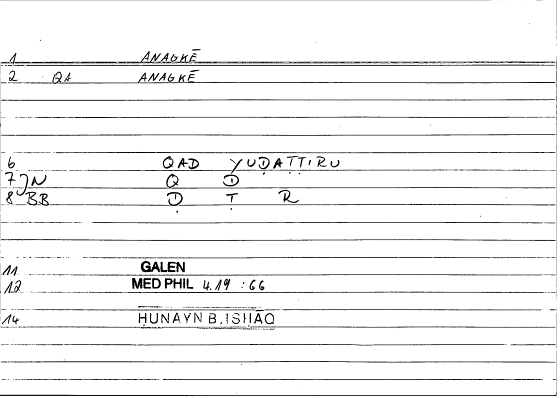 1 ANAGKĒ
2 QA ANAGKĒ
6 QAD YUḌAṬṬIRU
7 JN Q Ḍ
8 BB Ḍ Ṭ R
11 GALEN
12 MED PHIL 4.19 :66
14 HUNAYN B.ISHAQ